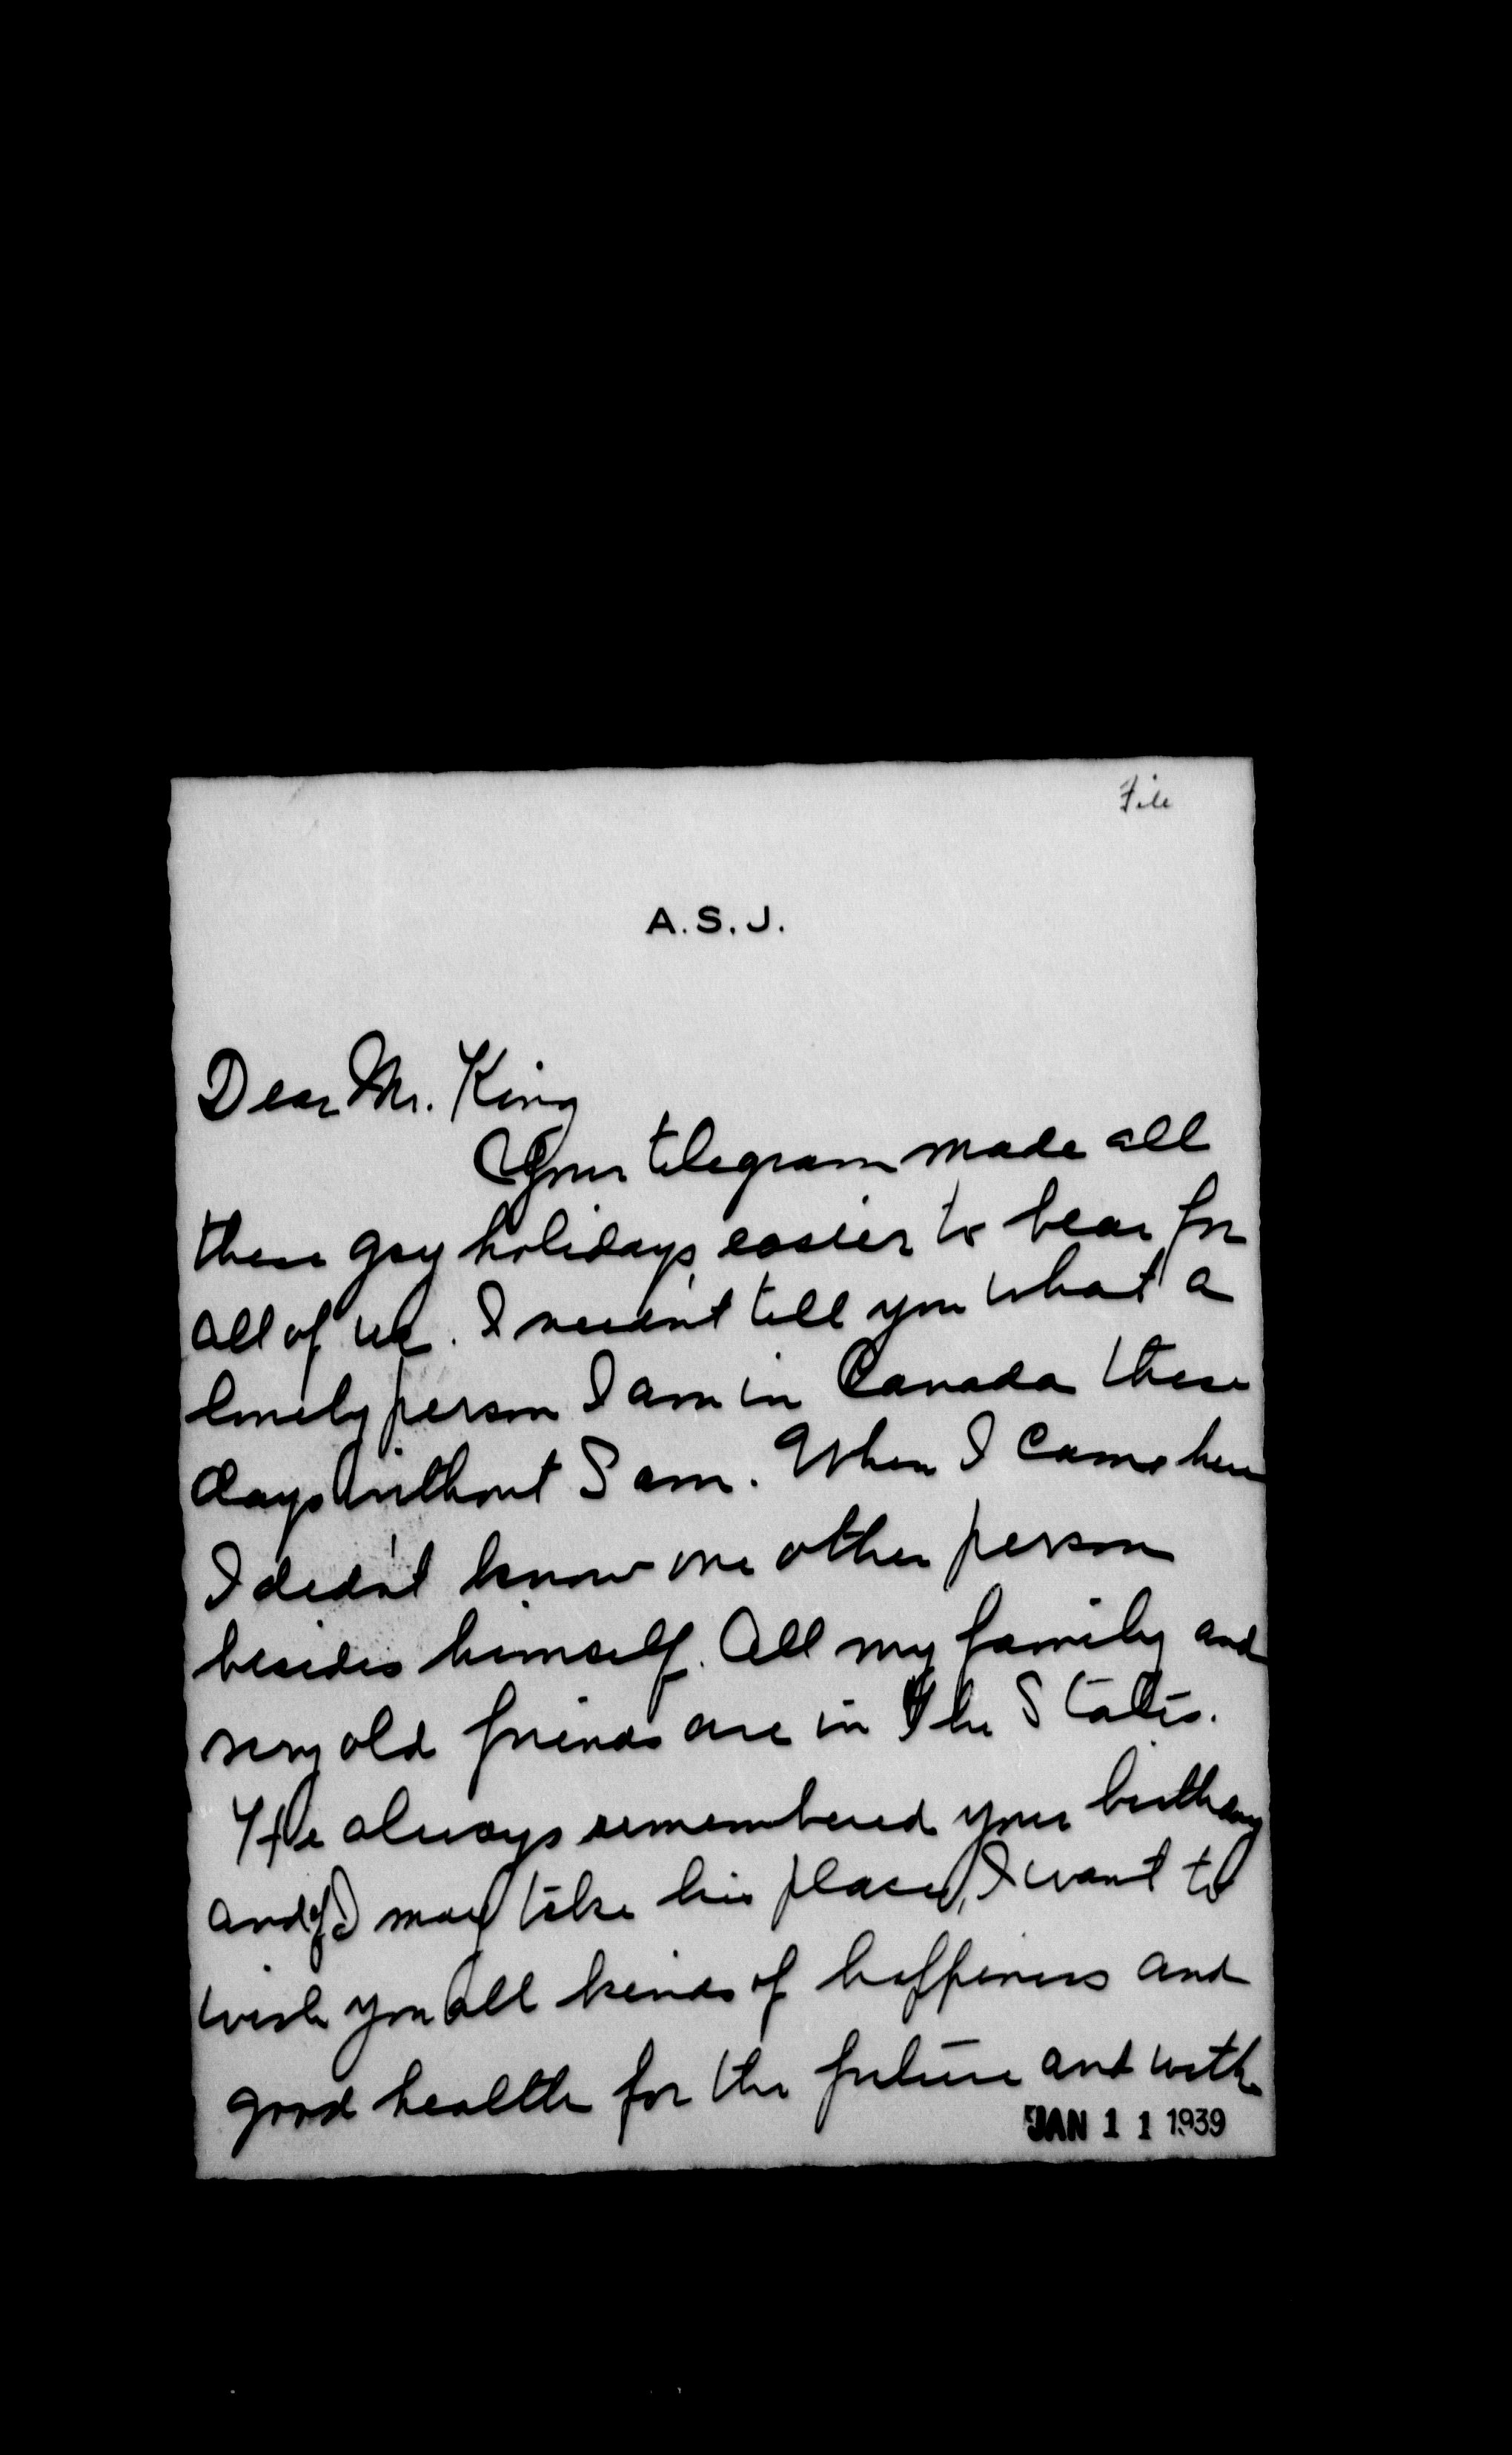 File
A.S.J.
Dear Mr. King
Your telegram made all
these gay holidays easier to bear for
all of us. I needn't tell you what a
lonely person I am in Canada these
days without Sam. When I came here
I didn't know one other person
besides himself. All my family and
very old friends are in the States.
He always remembered your birthday
and if I may take his place, I want to
wish you all kinds of happiness and
good health for the future and with
JAN 11 1939